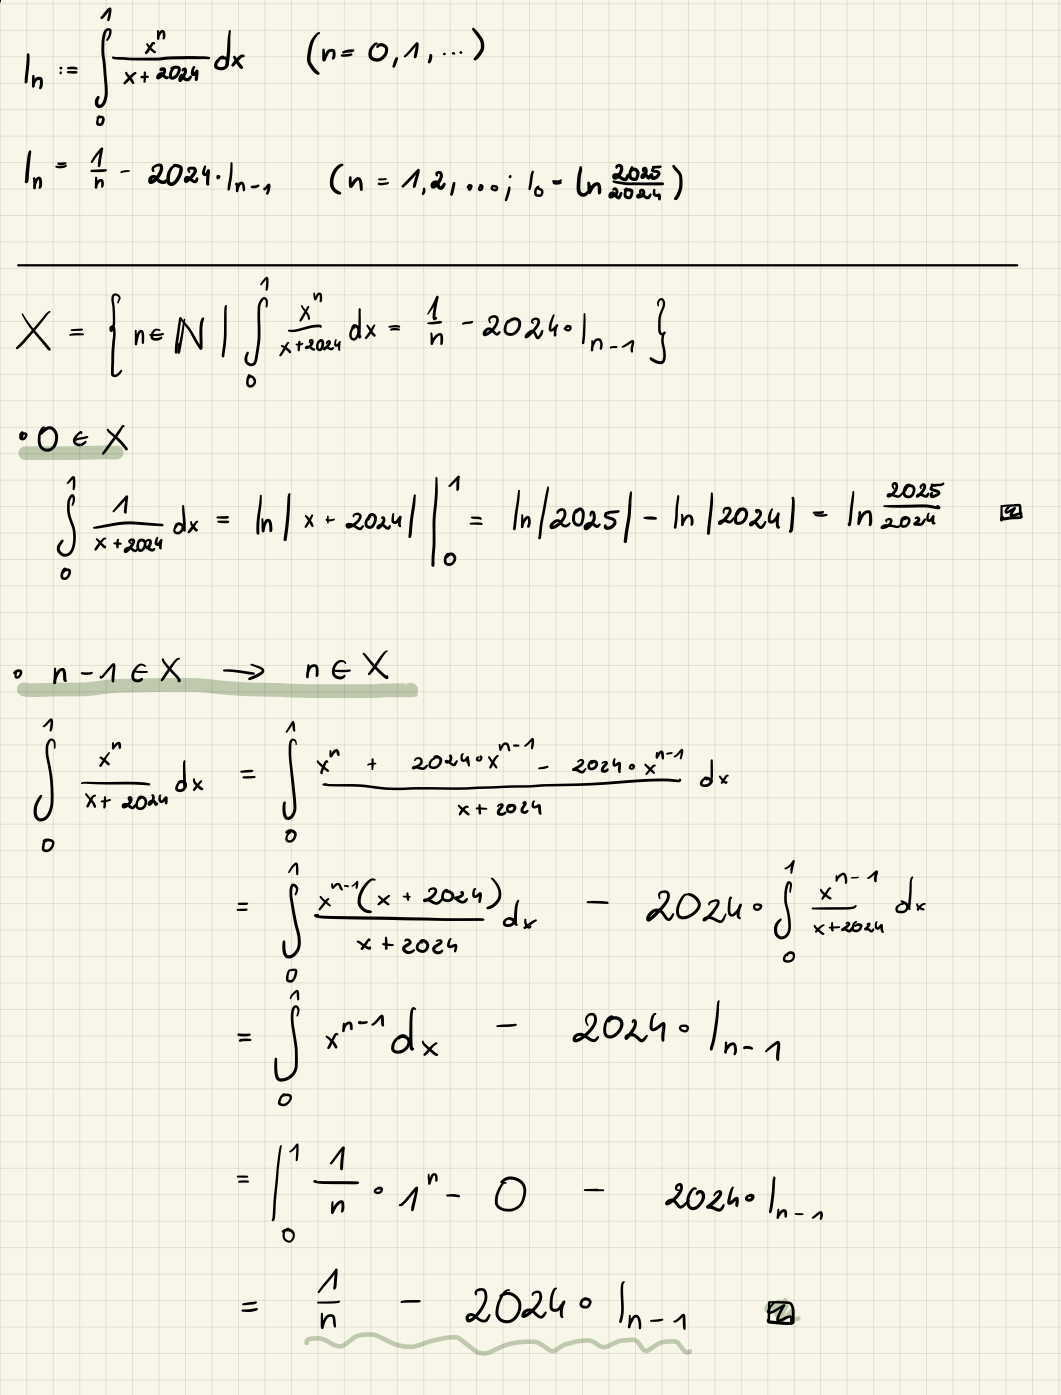 I_n := ∫_0^1 x^n/(x+2024) dx (n = 0, 1, ...)
I_n = 1/n - 2024·I_{n-1} (n = 1, 2, ...; I_0 - ln 2025/2024)
X = { n ∈ ℕ | ∫_0^1 x^n/(x+2024) dx = 1/n - 2024·I_{n-1} }
• 0 ∈ X
∫_0^1 1/(x+2024) dx = ln|x + 2024| |_0^1 = ln|2025| - ln|2024| = ln 2025/2024
• n-1 ∈ X → n ∈ X
∫_0^1 x^n/(x+2024) dx = ∫_0^1 (x^n + 2024·x^{n-1} - 2024·x^{n-1})/(x+2024) dx
= ∫_0^1 x^{n-1}(x+2024)/(x+2024) dx - 2024·∫_0^1 x^{n-1}/(x+2024) dx
= ∫_0^1 x^{n-1} dx - 2024·I_{n-1}
= |_0^1 1/n · 1^n - 0 - 2024·I_{n-1}
= 1/n - 2024·I_{n-1}